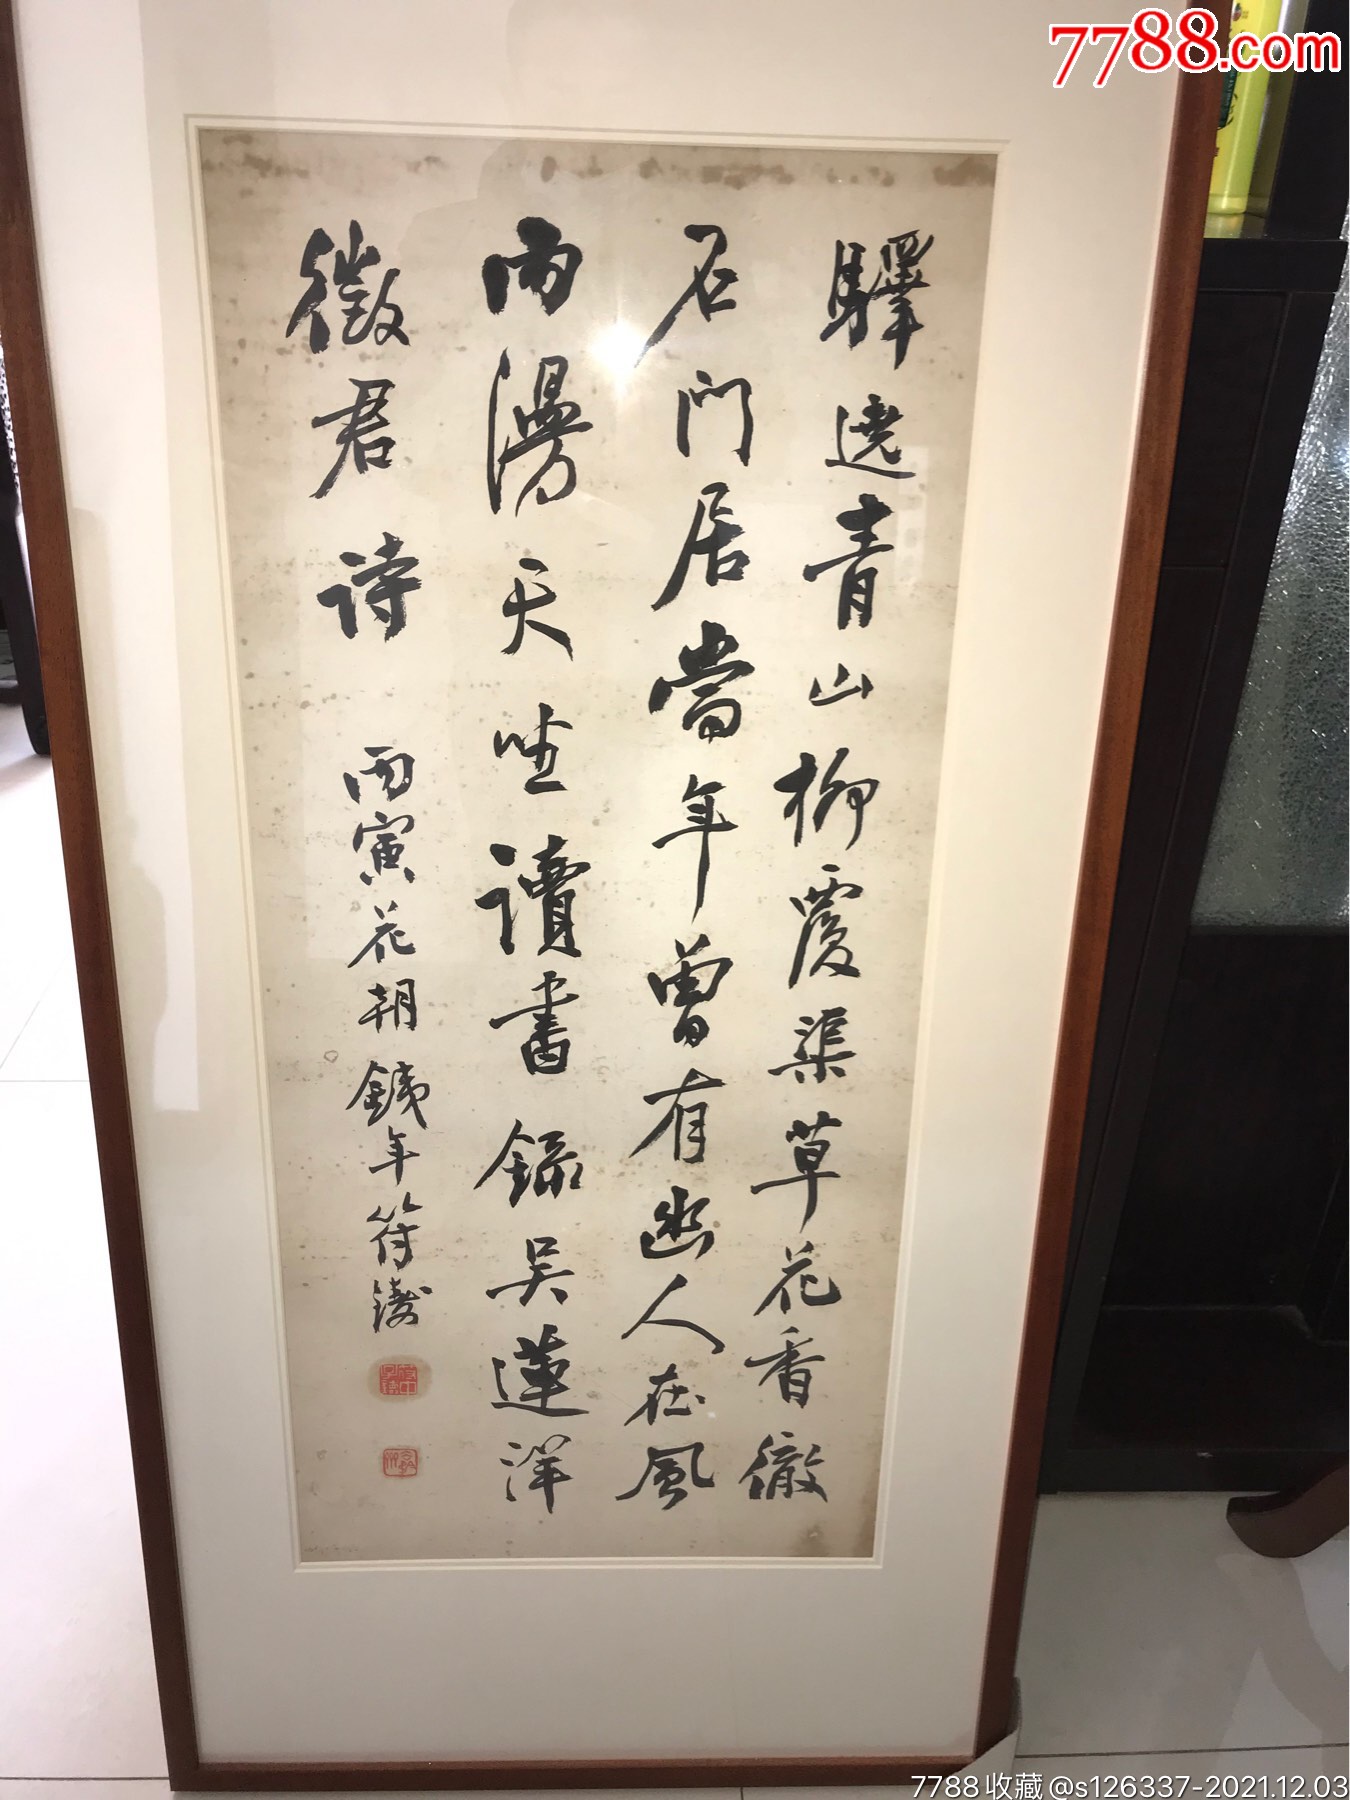 7788.com
驛遶青山柳覆渠草花香徹
石門居當年曾有幽人在風
雨漫天坐讀書錄吳蓮洋
徵君詩
丙寅花朝鐵年符鑄
7788收藏@s126337-2021.12.03